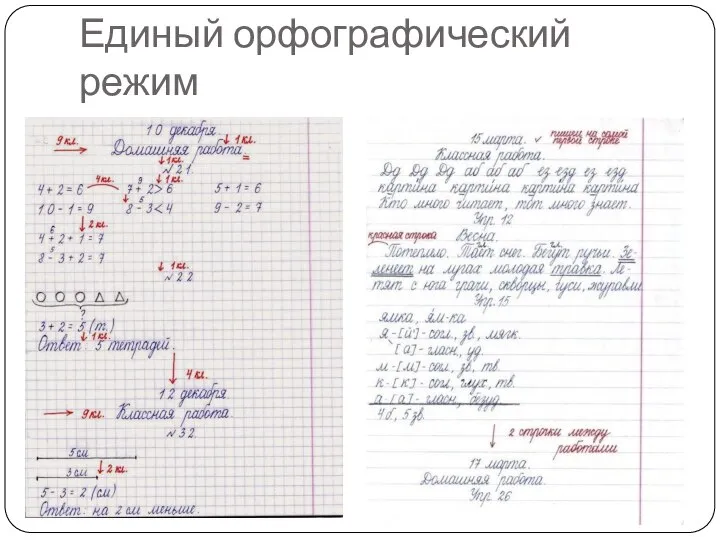 Единый орфографический
режим
10 декабря.
9 кл.
↓ 1 кл.
Домашняя работа.
↓ 1 кл.
№ 21.
4 кл.
↓ 1 кл.
9
4 + 2 = 6 7 + 2 > 6 5 + 1 = 6
5
10 - 1 = 9 8 - 3 < 4 9 - 2 = 7
6 ↓ 2 кл.
4 + 2 + 1 = 7
5
8 - 3 + 2 = 7
↓ 1 кл.
№ 22.
?
3 + 2 = 5 (т.)
↓ 1 кл.
Ответ: 5 тетрадей.
↓ 4 кл.
12 декабря.
9 кл. Классная работа.
№ 32.
5 см
3 см ↓ 2 кл.
5 - 3 = 2 (см)
Ответ: на 2 см меньше.
15 марта. пишем на самой
первой строке
Классная работа.
Дд Дд Дд аб аб аб ез езд ез езд
картина картина картина картина
Кто много читает, тот много знает.
Упр. 12
красная строка Весна.
гл. гл.
Потеплело. Тает снег. Бегут ручьи. Зе-
ленеет на лугах молодая травка. Ле-
тят с юга грачи, скворцы, гуси, журавли.
Упр. 15
ямка, ям-ка
я - [й'] - согл., зв., мягк.
[а] - гласн., уд.
м - [м] - согл., зв., тв.
к - [к] - согл., глух., тв.
а - [а] - гласн., безуд.
4 б., 5 зв.
2 строчки между
работами
17 марта.
Домашняя работа.
Упр. 26